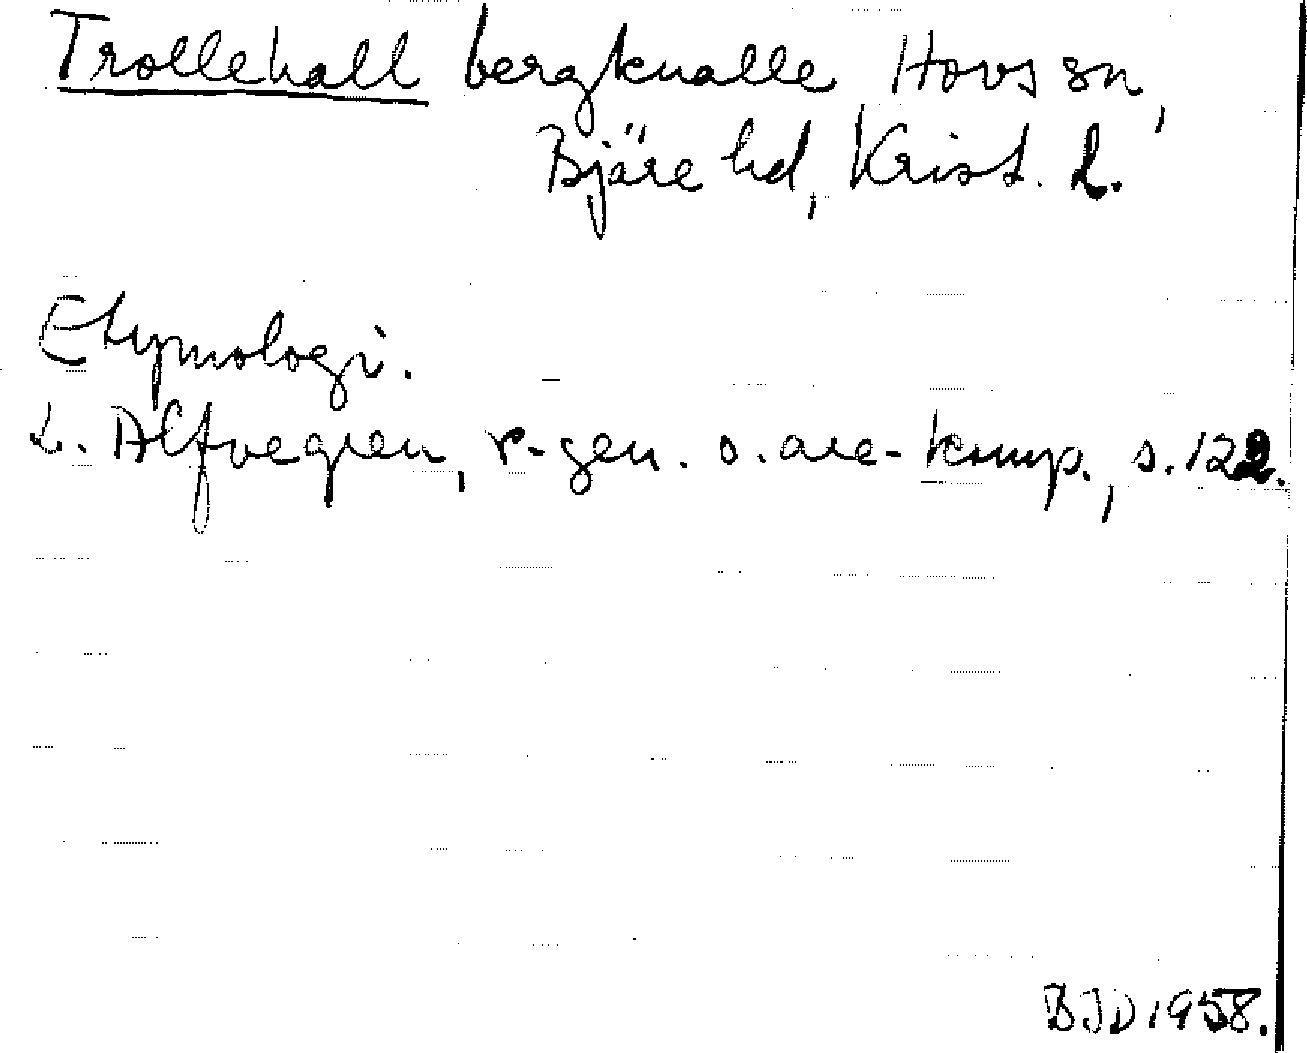 Trollehall bergknalle Hovs sn,
Bjäre hd, Krist. L.
Etymologi.
L. Alfvegren, r-gen. o. are-komp., s. 122.
BJD 1958.